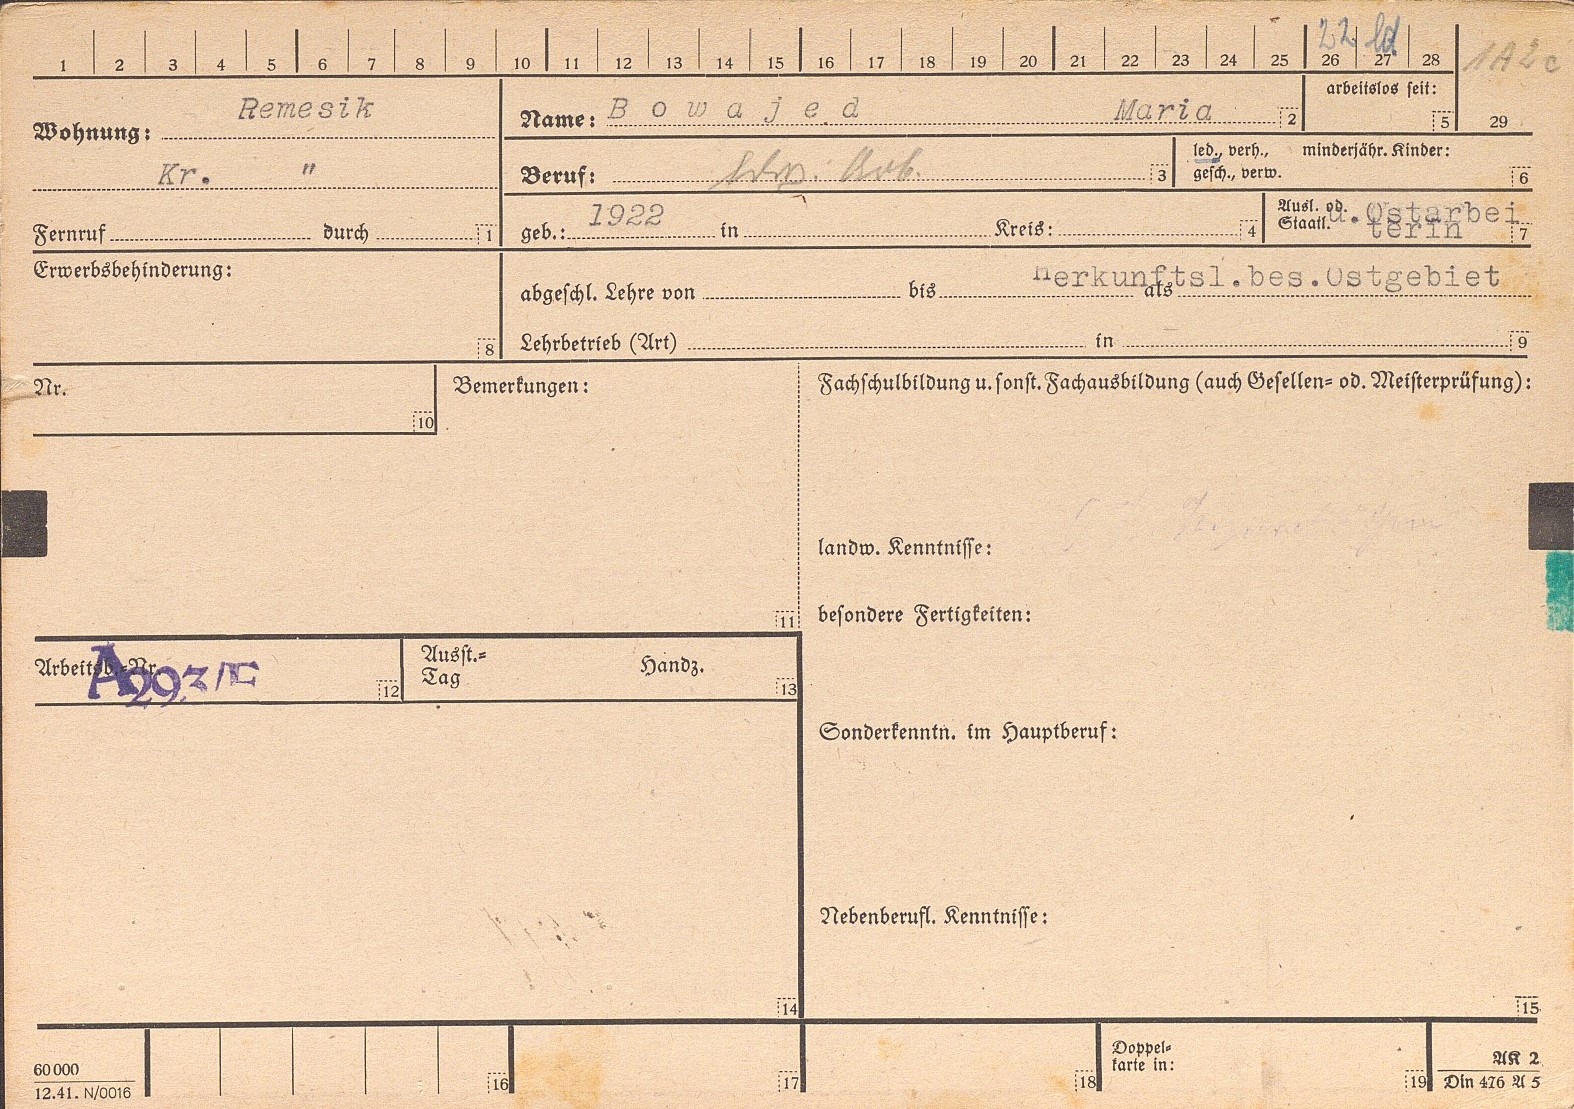 1 2 3 4 5 6 7 8 9 10 11 12 13 14 15 16 17 18 19 20 21 22 23 24 25 26 27 28 29
22 ld
1A2c
Wohnung: Remesik
Kr. "
Fernruf durch 1
Name: Bowajed Maria 2
arbeitslos seit: 5
Beruf: Arb. 3
led., verh., minderjähr. Kinder:
gesch., verw. 6
geb.: 1922 in Kreis: 4
Ausl. od. u. Ostarbei
Staatl. terin 7
Erwerbsbehinderung: 8
Herkunftsl.bes.Ostgebiet
abgeschl. Lehre von bis als
Lehrbetrieb (Art) in 9
Nr. 10
Bemerkungen: 11
Fachschulbildung u. sonst. Fachausbildung (auch Gesellen= od. Meisterprüfung):
landw. Kenntnisse:
besondere Fertigkeiten:
Arbeitsb.=Nr. A293/E 12
Ausst.= Handz.
Tag 13
Sonderkenntn. im Hauptberuf:
Nebenberufl. Kenntnisse:
14 15
60 000
12.41. N/0016
16 17 18
Doppel=
karte in: 19
AK 2
Din 476 A 5